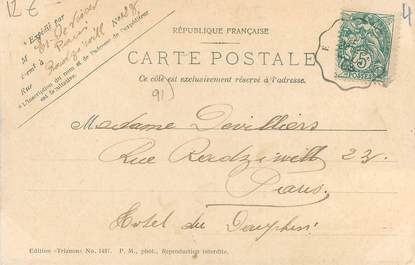 12 €
4
* Expédié par
M
rue
* L'inscription du nom et de l'adresse de l'expéditeur
est facultative.
RÉPUBLIQUE FRANÇAISE
CARTE POSTALE
Ce côté est exclusivement réservé à l'adresse.
POSTES
91)
Madame Devilliers
Rue Radziwill 23.
Paris.
Hotel du Dauphin
Edition «Trianon» No. 1487. P. M., phot., Reproduction interdite.